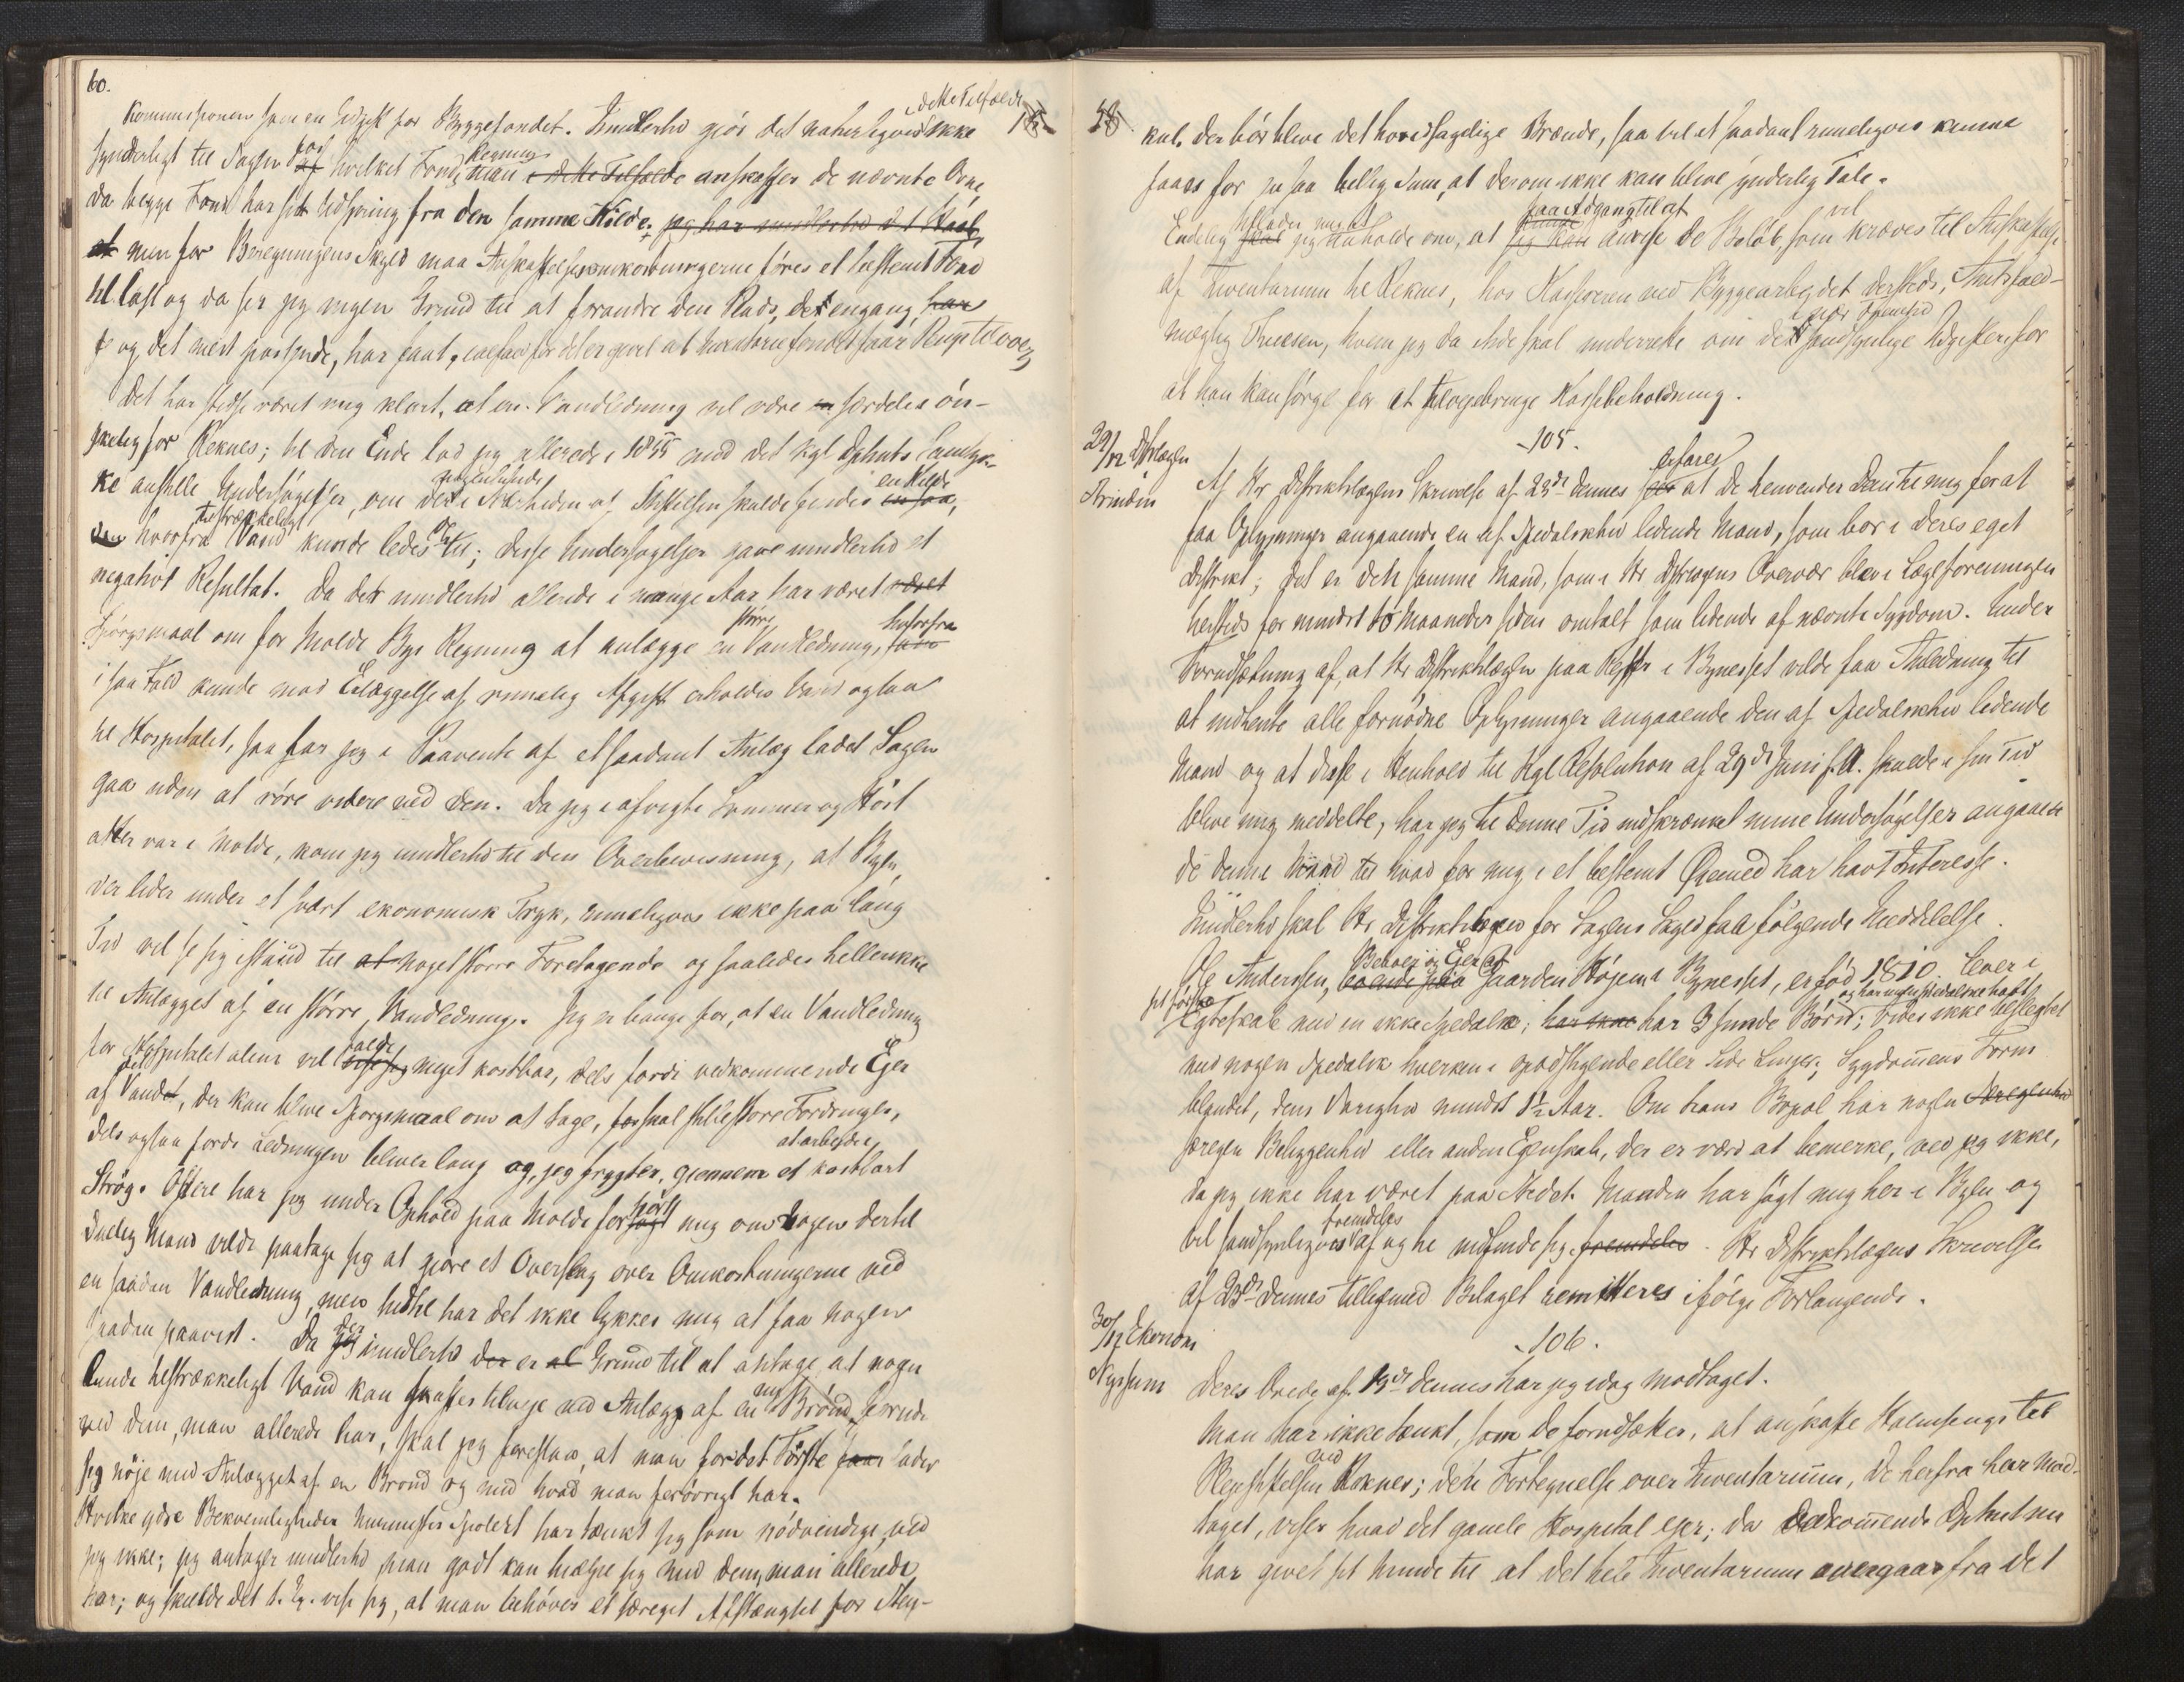 60.
i dette Tilfælde
Kommissionen som en Udgift for Byggefondet. Imidlertid gjör det naturligvis ikke
synderligt til Sagen paa af hvilket Fonds Regning man i dette Tilfælde anskaffer de nævnte Ovne,
da begge Fond har sit Udspring fra den samme Kilde; jeg har imidlertid det Haab,
at men for Beregningens Skyld maa Anskaffelsesomkostningerne föres et bestemt Fond
til Last og da ser jeg ingen Grund til at forandre den Plads, det engang har
og det mest passende, har faaet, ialfald for det er givet at Inventariefondet faar Penge tilovers
Det har stedse været mig klart, at en Vandledning vil være en særdeles ön-
skelig for Reknes; til den Ende lod jeg allerede i 1855 med det Kgl Dptmts Samtyk-
ke anstille Undersögelser, om der i Nærheden af Stiftelsen skulde findes en saa, en Kilde
den hvorfra tilstrækkeligt Vand kunde ledes til; disse Undersögelser gave imidlertid et
negativt Resultat. Da det imidlertid allerede i mange Aar har været været
Spörgsmaal om for Molde Bys Regning at anlægge en större Vandledning, som hvorfra
i saa Fald kunde mod Erlæggelse af rimelig Afgift erholdes Vand ogsaa
til Hospitalet, saa har jeg i Paavente af et saadant Anlæg ladet Sagen
gaa uden at röre videre ved den. Da jeg i afvigte Sommer og Höst
atter var i Molde, kom jeg imidlertid til den Overbevisning, at Byen,
der lider under et svært ekonomisk Tryk, rimeligvis ikke paa lang
Tid vil se sig istand til at noget större Foretagende og saaledes heller ikke
til Anlægget af en större Vandledning. Jeg er bange for, at en Vandledning
for Hospitalet alene vil vise sig falde meget kostbar, dels fordi vedkommende Eger
af det Vandet, der kan blive Spörgsmaal om at tage, skal stille store Fordringer,
dels ogsaa fordi Ledningen bliver lang og, jeg frygter, gjennem et kostbart at arbeide
Strög. Oftere har jeg under Ophold paa Molde forhört mig om nogen dertil
duelig Mand vilde paatage sig at gjöre et Overslag over Omkostningerne ved
en saadan Vandledning, men hidtil har det ikke lykkes mig at faa nogen
saadan paavist. Da der jeg imidlertid der er al Grund til at antage, at nogen
lunde tilstrækkeligt Vand kan skaffes tilveje ved Anlægg af en ny Brönd, foruden
ved dem, man allerede har, skal jeg foreslaa, at man for det Förste faar lader
sig nöje med Anlægget af en Brönd og med hvad man forövrigt har.
Hvilke ydre Bekvemligheder Murmester Spolert har tænkt sig som nödvendige, ved
jeg ikke; jeg antager imidlertid man godt kan hjælpe sig med dem, man allerede
har; og skulde det t. Ex. vise sig, at man behöver et særeget Aflukke for Sten-
kul, der bör blive det hovedsagelige Brænde, saa vil et saadant rimeligvis kunne
faaes for en saa billig Sum, at derom ikke kan blive synderlig Tale.
Endelig skal tillader mig at jeg anholde om, at jeg kan faa Adgang til at anvise de Beløb, som vil kræves til Anskaffelse
af Inventarium til Reknes, hos Kassereren ved Byggearbejdet dersteds, Amtsfuld-
mægtig Thuesen, hvem jeg da ogsaa skal underrette om de sandsynlige Udgifter for
at han kan sörge for at tilvejebringe Kassebeholdning.
29/12 Dstrlægen
Brindin
105.
Af Hr Distriktslægens Skrivelse af 23de dennes ser erfares at De henvender Dem til mig for at
faa Oplysninger angaaende en af Spedalskhed lidende Mand, som bor i Deres eget
Distrikt; det er den samme Mand, som i Hr Dstrlægens Overvær blev i Lægeforeningen
hersteds for mindst to Maaneder siden omtalt som lidende af nævnte Sygdom. Under
Forudsætning af, at Hr Distriktslægen paa Rejser i Bynesset vilde faa Anledning til
at indhente alle fornödne Oplysninger angaaende den af Spedalskhed lidende
Mand og at disse i Henhold til Kgl Resolution af 29de Juni f. A. skulde i sin Tid
blive mig meddelte, har jeg til denne Tid indskrænket mine Undersögelser angaaen
de denne Mand til hvad for mig i et bestemt Öjemed har havt Interesse.
Imidlertid skal Hr Distriktslægen for Sagens Skyld faa fölgende Meddelelse.
Ole Andersen, boende paa Beboer og Eier af Gaarden Höjem i Bynesset, er föd 1810. Lever i
sit förste Egteskab med en ikke Spedalsk; har ikke har 3 sunde Börn; vides ikke beslegtet
med nogen Spedalsk hverken i opadstigende eller Side Linjer; Sygdommens Form
blandet, dens Varighed mindst 1½ Aar. Om hans Bopæl har nogen
særegen Beliggenhed eller anden Egenskab, der er værd at bemerke, ved jeg ikke,
da jeg ikke har været paa Stedet. Manden har sögt mig her i Byen og
vil sandsynligvis fremdeles af og til indfinde sig fremdeles. Hr Distriktslægens Skrivelse
af 23de dennes tilligemed Bilaget remitteres ifölge Forlangende.
30/12 Ekonom
Nyssum
106.
Deres Brev af 19de dennes har jeg idag modtaget.
Man har ikke tænkt, som De forudsætter, at anskaffe Halmsenge til
Plejestiftelsen ved Reknes; den Fortegnelse over Inventarium, De herfra har mod-
taget, viser hvad det gamle Hospital ejer; da Vedkommende Dptmt nu
har givet sit Minde til at det hele Inventarium overgaar fra det